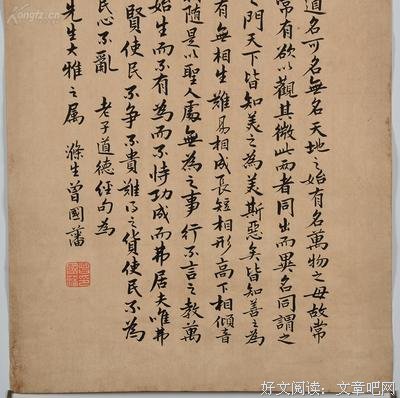 道名可名無名天地之始有名萬物之母故常
常有欲以觀其徼此兩者同出而異名同謂之
之門天下皆知美之為美斯惡矣皆知善之為
有無相生難易相成長短相形高下相傾音
隨是以聖人處無為之事行不言之教萬
生而不有為而不恃功成而弗居夫唯弗
賢使民不爭不貴難得之貨使民不為
民心不亂 老子道德經句為
先生大雅之属 滌生曾國藩
好文阅读：文章吧网